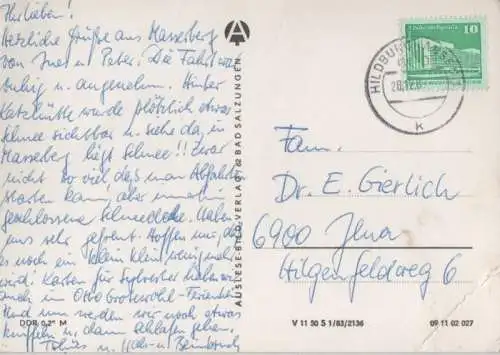 Ihr Lieben!
Herzliche Grüße aus Masserberg
von Ines u. Peter. Die Fahrt war
ruhig u. angenehm. Hinter
Katzhütte wurde plötzlich etwas
Schnee sichtbar u. siehe da, in
Masserberg liegt Schnee!! Zwar
nicht so viel, daß man Abfahrts
starten kann, aber immerhin
geschlossene Schneedecke. Haben
uns sehr gefreut. Hoffen nur, daß
es noch ein klein klein wenig mehr
wird. Karten für Sylvester haben wir
auch im Otto Grotewohl-Ferienheim
Und nun werden wir noch etwas
knuffeln u. dann schlafen gehen.
Tschüs u.
AUSLESE-BILD-VERLAG BAD SALZUNGEN
A
10
HILDBURGHAUSEN
K
Fam.
Dr. E. Gierlich
6900 Jena
Hilgenfeldweg 6
DDR 0,2" M
V 11 50 S 1/83/2136
09 11 02 027